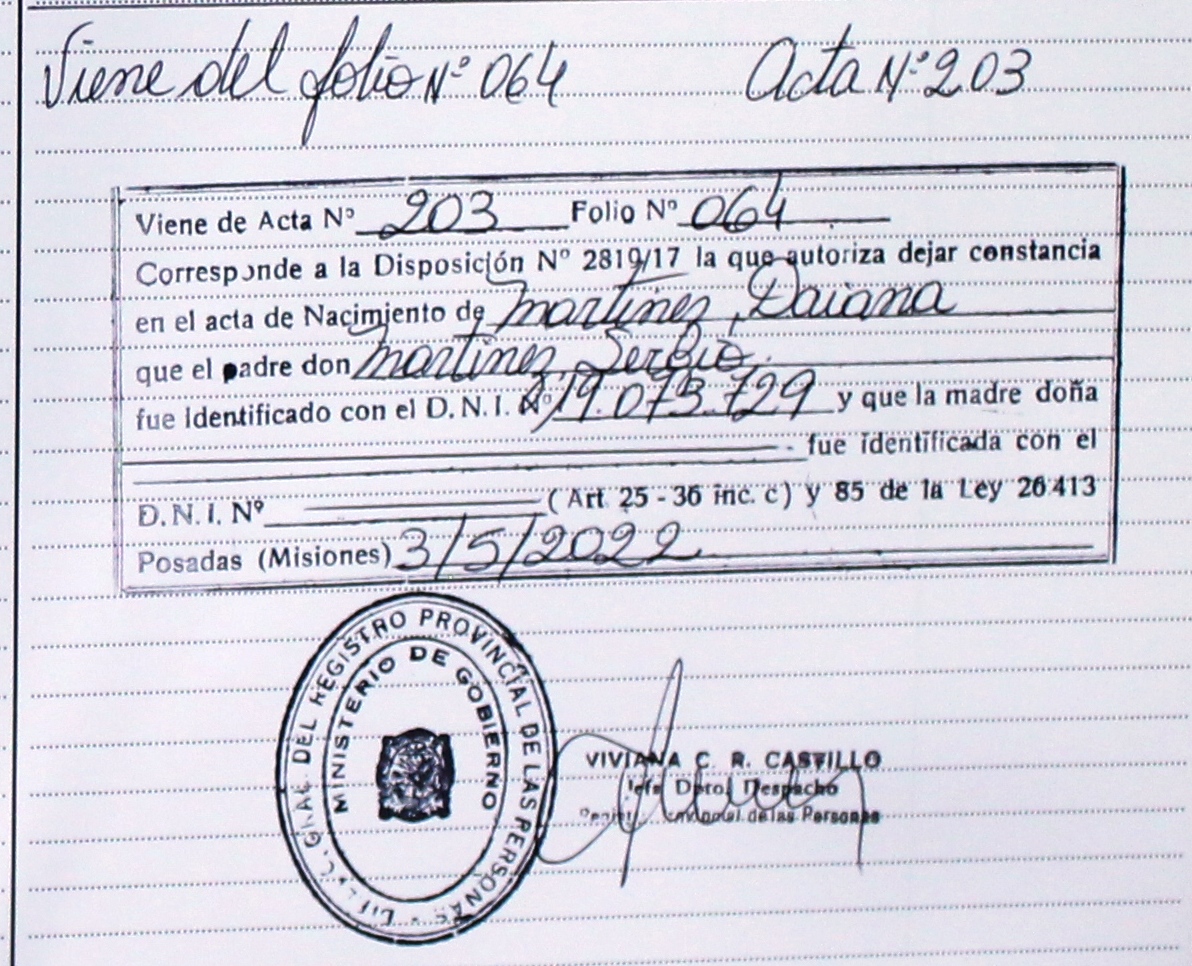 Viene del folio Nº 064 Acta Nº 203
Viene de Acta Nº 203 Folio Nº 064
Corresponde a la Disposición Nº 2819/17 la que autoriza dejar constancia
en el acta de Nacimiento de Martinez, Daiana
que el padre don Martinez, Sergio.
fue identificado con el D.N.I. Nº 19.073.729 y que la madre doña
fue identificada con el
D.N.I. Nº (Art. 25 - 36 inc. c) y 85 de la Ley 26.413
Posadas (Misiones) 3/5/2022
GRAL DEL REGISTRO PROVINCIAL DE LAS PERSONAS
MINISTERIO DE GOBIERNO
VIVIANA C. R. CASTILLO
Jefa Dpto. Despacho
de las Personas